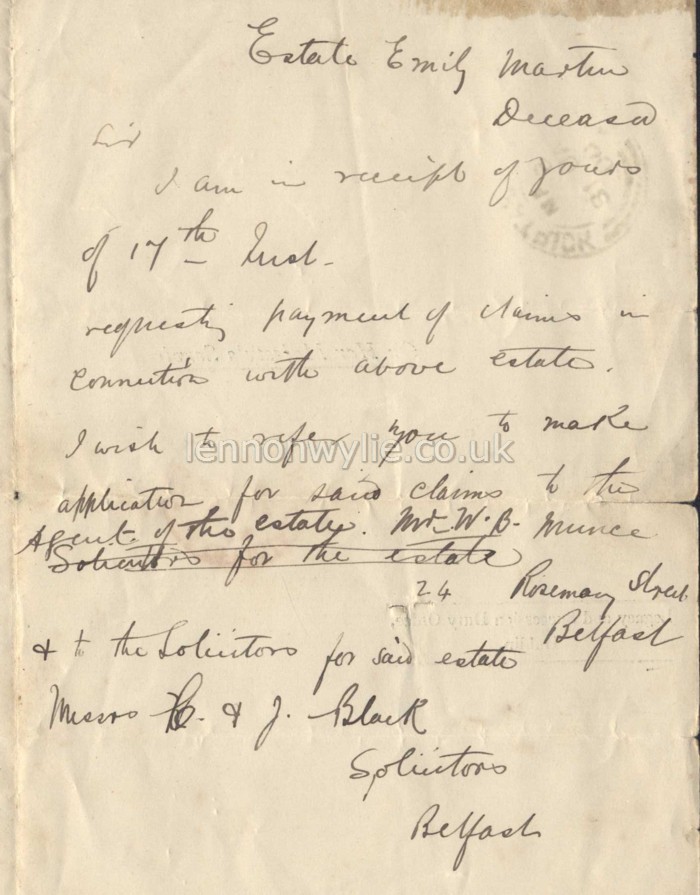 Estate Emily Martin
Deceased
Sir
I am in receipt of yours
of 17th Inst.
requesting payment of claims in
connection with above estate.
I wish to refer you to make
lennonwylie.co.uk
application for said claims to the
Agent of the estate. Mr. W. B. Munce
Solicitors for the estate
24 Rosemary Street
Belfast
& to the Solicitors for said estate
Messrs & J. Black
Solicitors
Belfast